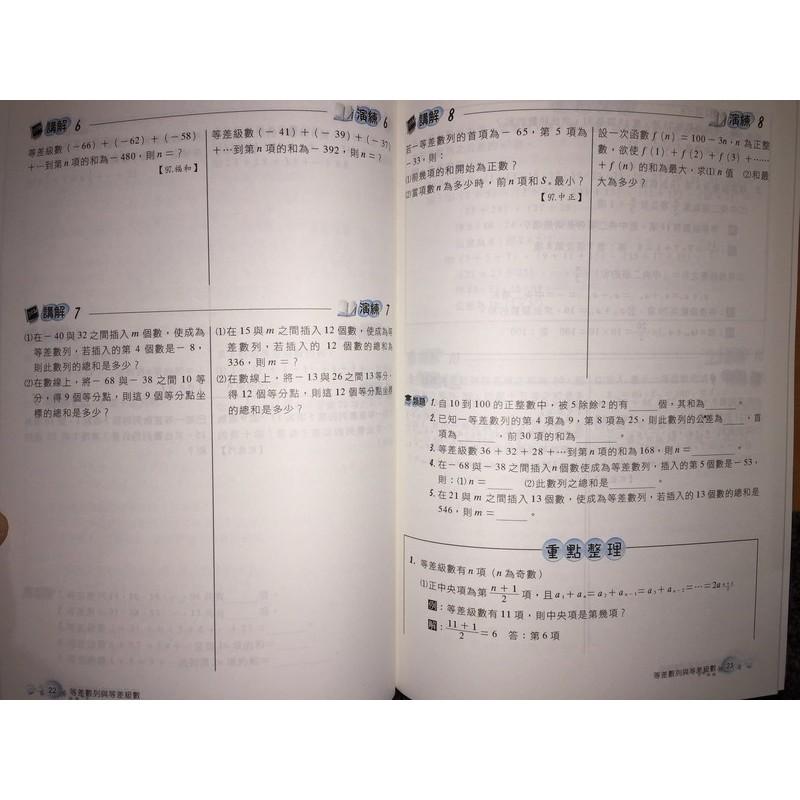 講解 6
等差級數(－66)＋(－62)＋(－58)
＋…到第 n 項的和為－480，則 n＝？
【97.福和】
演練 6
等差級數(－41)＋(－39)＋(－37)
＋…到第 n 項的和為－392，則 n＝？
講解 7
⑴在－40與32之間插入 m 個數，使成為
等差數列，若插入的第 4 個數是－8，
則此數列的總和是多少？
⑵在數線上，將－68 與－38 之間 10 等
分，得 9 個等分點，則這 9 個等分點坐
標的總和是多少？
演練 7
⑴在 15 與 m 之間插入 12 個數，使成為等
差數列，若插入的 12 個數的總和為
336，則 m＝？
⑵在數線上，將－13 與26 之間13等分，
得 12 個等分點，則這 12 個等分點坐
標的總和是多少？
22
等差數列與等差級數
講解 8
若一等差數列的首項為－65，第 5 項為
－33，則：
⑴前幾項的和開始為正數？
⑵當項數 n 為多少時，前 n 項和 Sₙ 最小？
【97.中正】
演練 8
設一次函數 f(n)＝100－3n，n 為正整
數，欲使 f(1)＋f(2)＋f(3)＋……
＋f(n) 的和為最大，求⑴ n 值 ⑵和最
大為多少？
類題
1. 自 10 到 100 的正整數中，被 5 除餘 2 的有____個，其和為____。
2. 已知一等差數列的第 4 項為 9，第 8 項為 25，則此數列的公差為____，首
項為____，前 30 項的和為____。
3. 等差級數 36＋32＋28＋…到第 n 項的和為 168，則 n＝____。
4. 在－68 與－38 之間插入 n 個數使成為等差數列，插入的第 5 個數是－53，
則：⑴ n＝____ ⑵此數列之總和是____。
5. 在 21 與 m 之間插入 13 個數，使成為等差數列，若插入的 13 個數的總和是
546，則 m＝____。
重點整理
1. 等差級數有 n 項（n 為奇數）
⑴正中央項為第 (n＋1)/2 項，且 a₁＋aₙ＝a₂＋aₙ₋₁＝a₃＋aₙ₋₂＝…＝2a₍ₙ₊₁₎/₂
例：等差級數有 11 項，則中央項是第幾項？
解：(11＋1)/2＝6 答：第 6 項
等差數列與等差級數
23